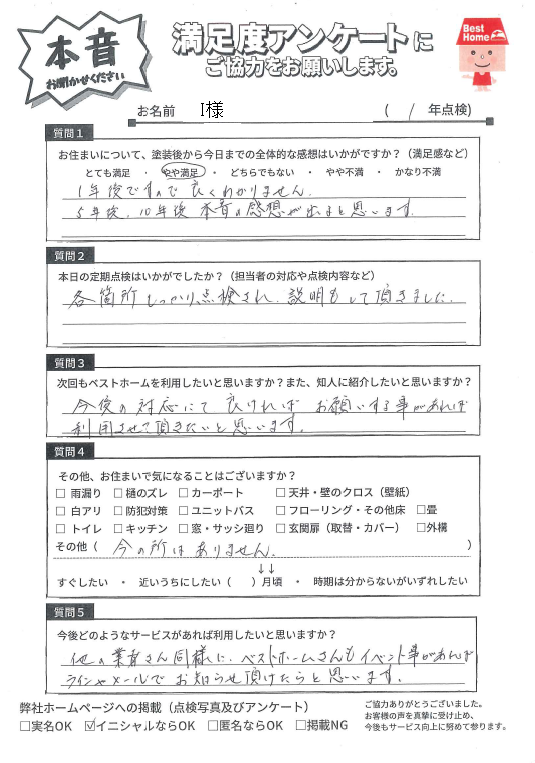 本音
お聞かせください
満足度アンケートに
ご協力をお願いします。
Best Home
お名前 I様 ( / 年点検)
質問1
お住まいについて、塗装後から今日までの全体的な感想はいかがですか？（満足感など）
とても満足 ・ やや満足 ・ どちらでもない ・ やや不満 ・ かなり不満
1年後ですので良くわかりません。
5年後、10年後本音の感想が出ると思います。
質問2
本日の定期点検はいかがでしたか？（担当者の対応や点検内容など）
各箇所しっかり点検され、説明もして頂きました。
質問3
次回もベストホームを利用したいと思いますか？また、知人に紹介したいと思いますか？
今後の対応にて良ければお願いする事があれば
利用させて頂きたいと思います。
質問4
その他、お住まいで気になることはございますか？
□ 雨漏り □ 樋のズレ □ カーポート □ 天井・壁のクロス（壁紙）
□ 白アリ □ 防犯対策 □ ユニットバス □ フローリング・その他床 □畳
□ トイレ □ キッチン □ 窓・サッシ廻り □ 玄関扉（取替・カバー） □外構
その他（ 今の所はありません。 ）
↓↓
すぐしたい ・ 近いうちにしたい（ ）月頃 ・ 時期は分からないがいずれしたい
質問5
今後どのようなサービスがあれば利用したいと思いますか？
他の業者さん同様に、ベストホームさんもイベント事があれば
ラインやメールでお知らせ頂けたらと思います。
弊社ホームページへの掲載（点検写真及びアンケート）
□実名OK ☑イニシャルならOK □匿名ならOK □掲載NG
ご協力ありがとうございました。
お客様の声を真摯に受け止め、
今後もサービス向上に努めて参ります。